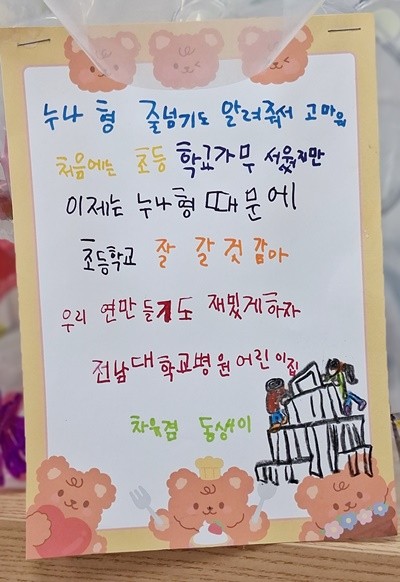 누나 형 줄넘기도 알려줘서 고마워
처음에는 초등 학교가 무서웠지만
이제는 누나형 때문에
초등학교 잘 갈 것 같아
우리 연만들기도 재밌게하자
전남대학교병원어린이집
차윤겸 동생이